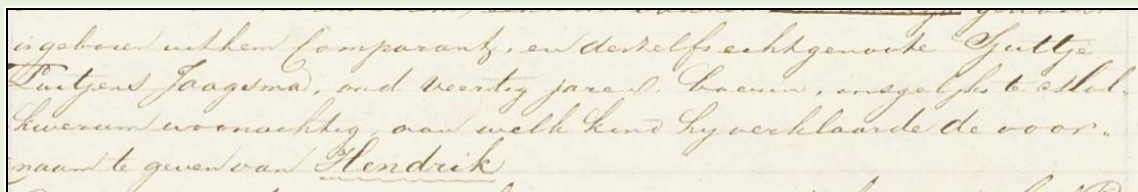 is geboren uit hem Comparant, en deszelfs echtgenoote Grietje
Luitjens Jaagsma, oud veertig jaren, boerin, insgelijks te
kwerum woonachtig, aan welk kind hy verklaarde de voor-
naam te geven van Hendrik